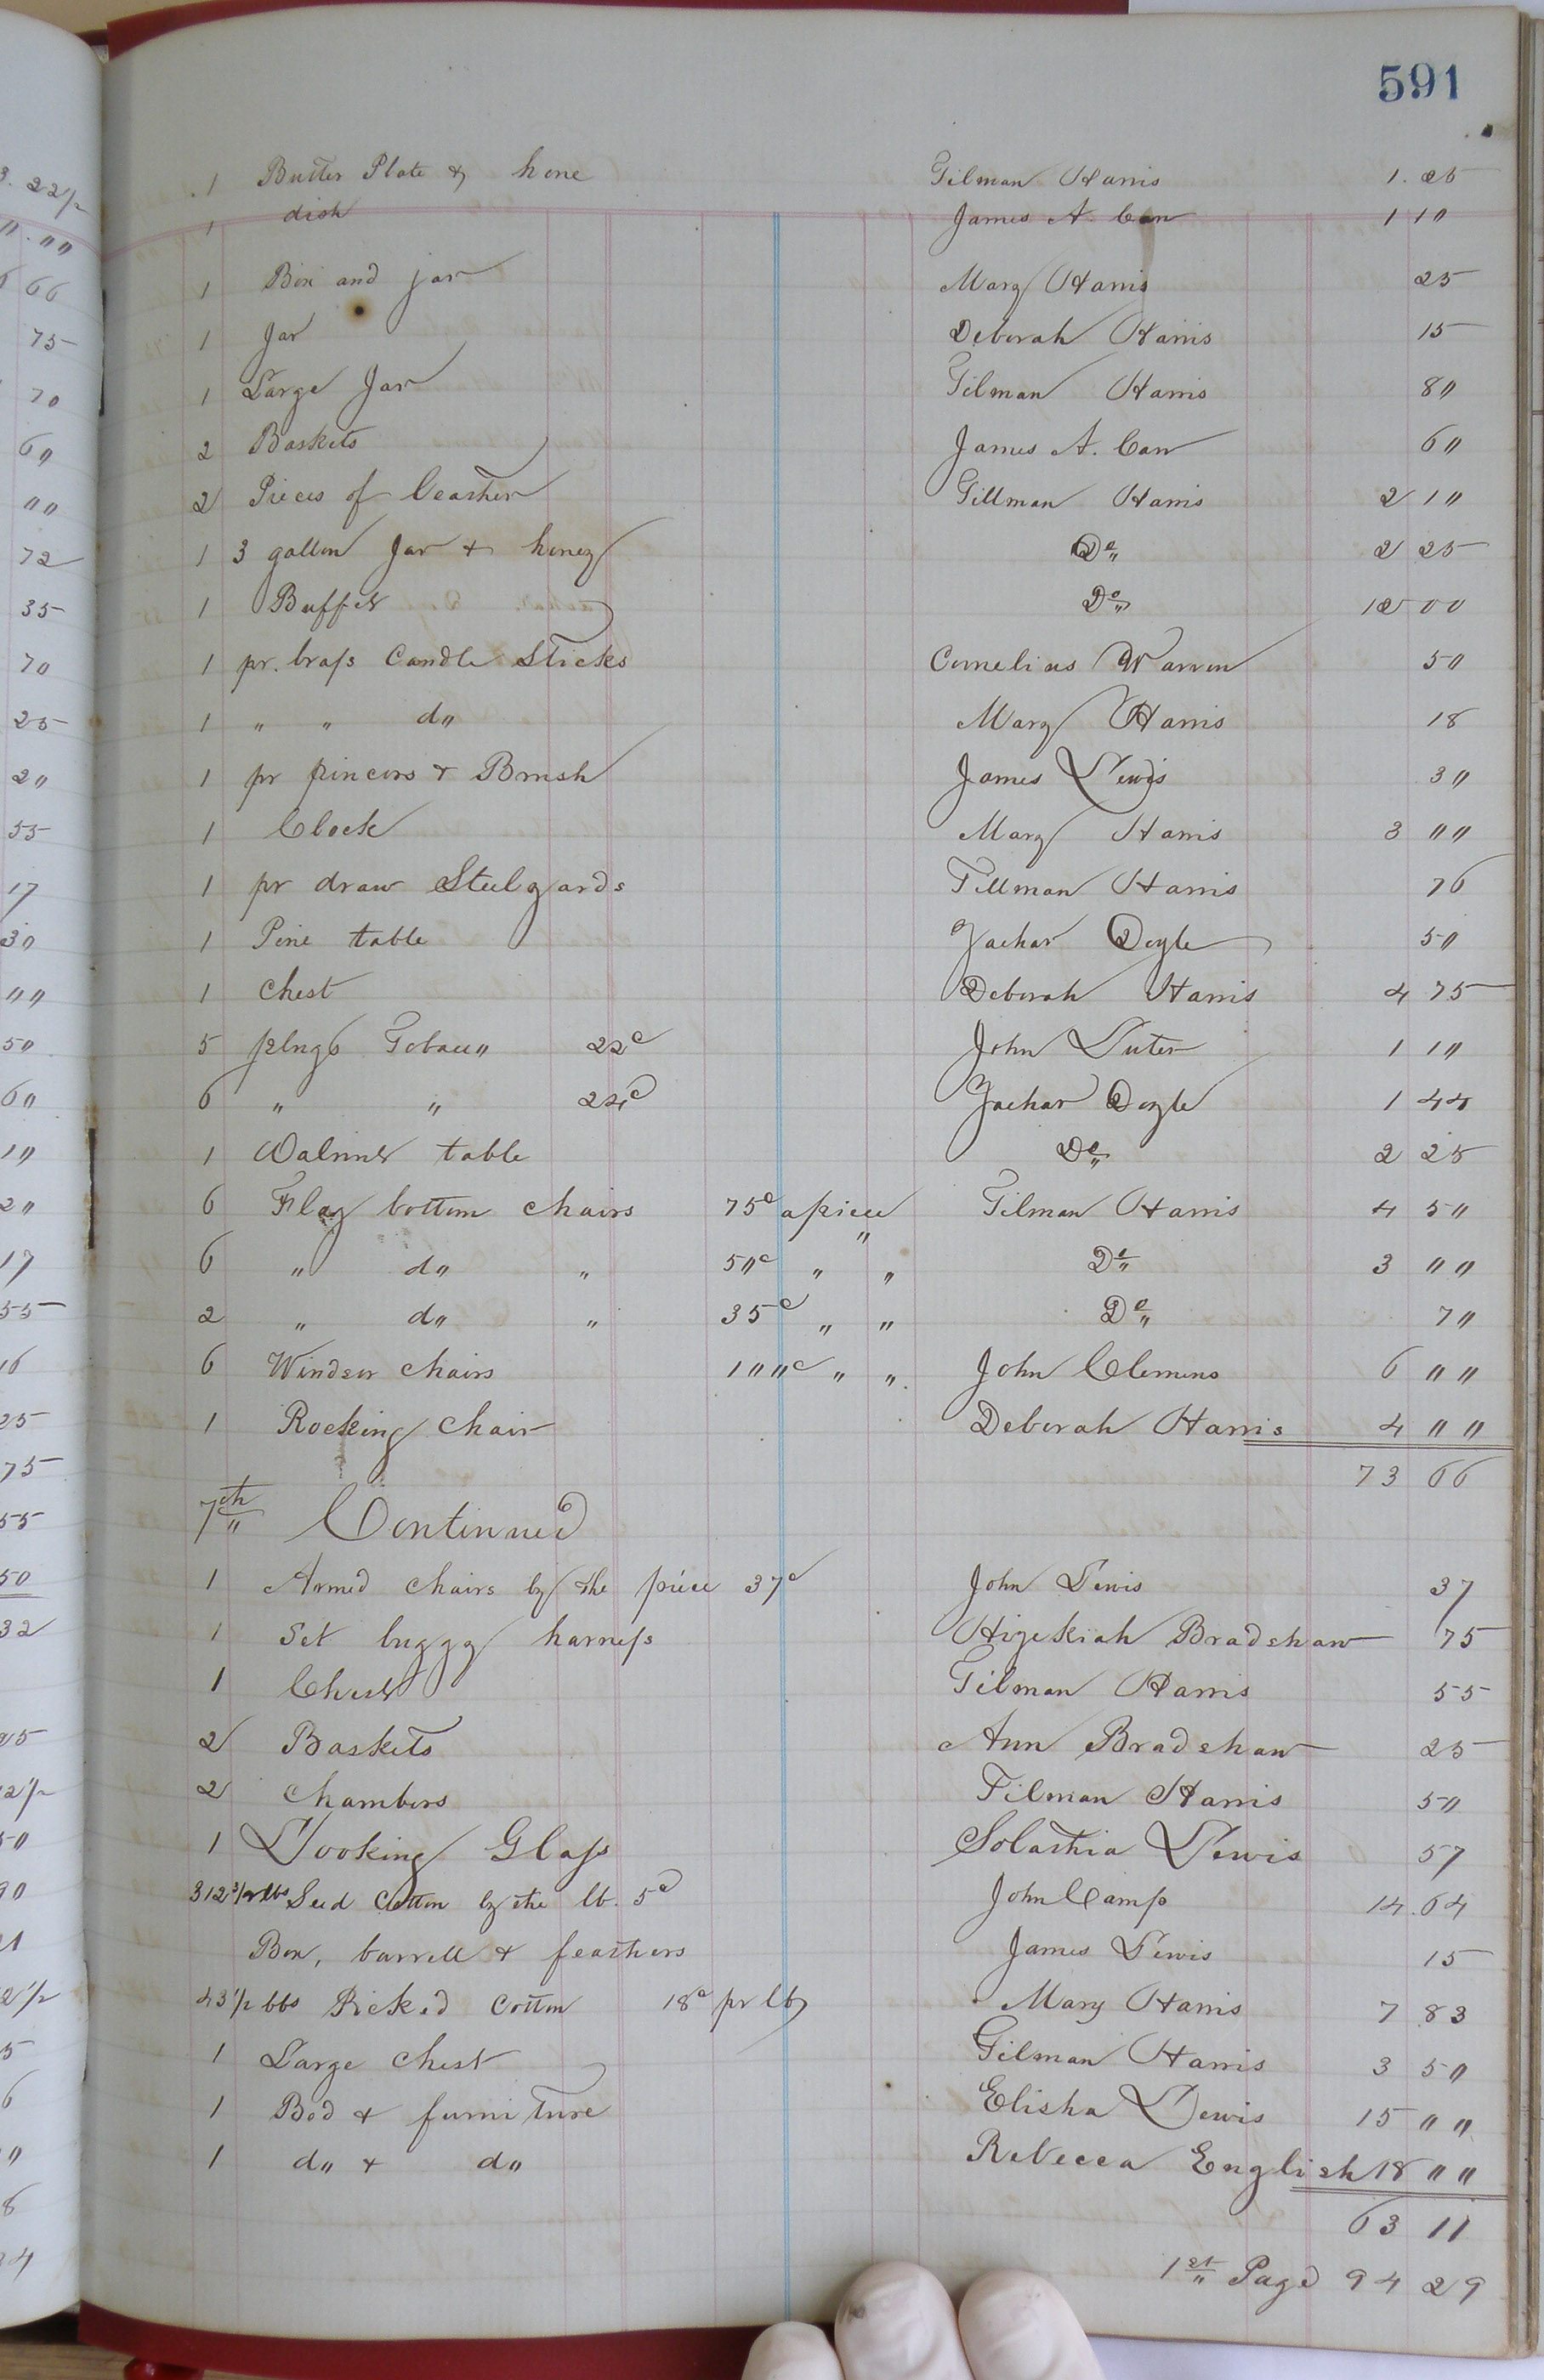 591
1 Butter Plate & hone Tilman Harris 1.25
1 dish James A Carr 1 10
1 Box and jar Mary Harris 25
1 Jar Deborah Harris 15
1 Large Jar Tilman Harris 80
2 Baskets James A. Carr 60
2 Pieces of Leather Tillman Harris 2 10
1 3 gallon Jar & honey Do 2 25
1 Buffet Do 00
1 pr. brass Candle Sticks Cornelius Warren 50
1 " " do Mary Harris 18
1 pr pincers & Brush James Lewis 30
1 Clock Mary Harris 3 00
1 pr draw Steelyards Tillman Harris 76
1 Pine table Zachar Doyle 50
1 Chest Deborah Harris 4 75
5 plugs Tobacco 22c John Luter 1 10
6 " " 24c Zachar Doyle 1 44
1 Walnut table Do 2 25
6 Flag bottom chairs 75c apiece Tilman Harris 4 50
6 " do " 50c " " Do 3 00
2 " do " 35c " " Do 70
6 Windsor chairs 100c " " John Clemens 6 00
1 Rocking Chair Deborah Harris 4 00
73 66
7th Continued
1 Armed chairs by the piece 37c John Lewis 37
1 Set buggy harness Hizekiah Bradshaw 75
1 Chest Tilman Harris 55
2 Baskets Ann Bradshaw 25
2 Chambers Tilman Harris 50
1 Looking Glass Solathia Lewis 57
312 lbs Seed Cotton by the lb. 5c John Camp 14.64
Box, barrell & feathers James Lewis 15
43 1/2 lbs Picked Cotton 18c pr lb Mary Harris 7 83
1 Large Chest Tilman Harris 3 50
1 Bed & furniture Elisha Lewis 15 00
1 do & do Rebecca English 18 00
63 11
1st Page 94 29